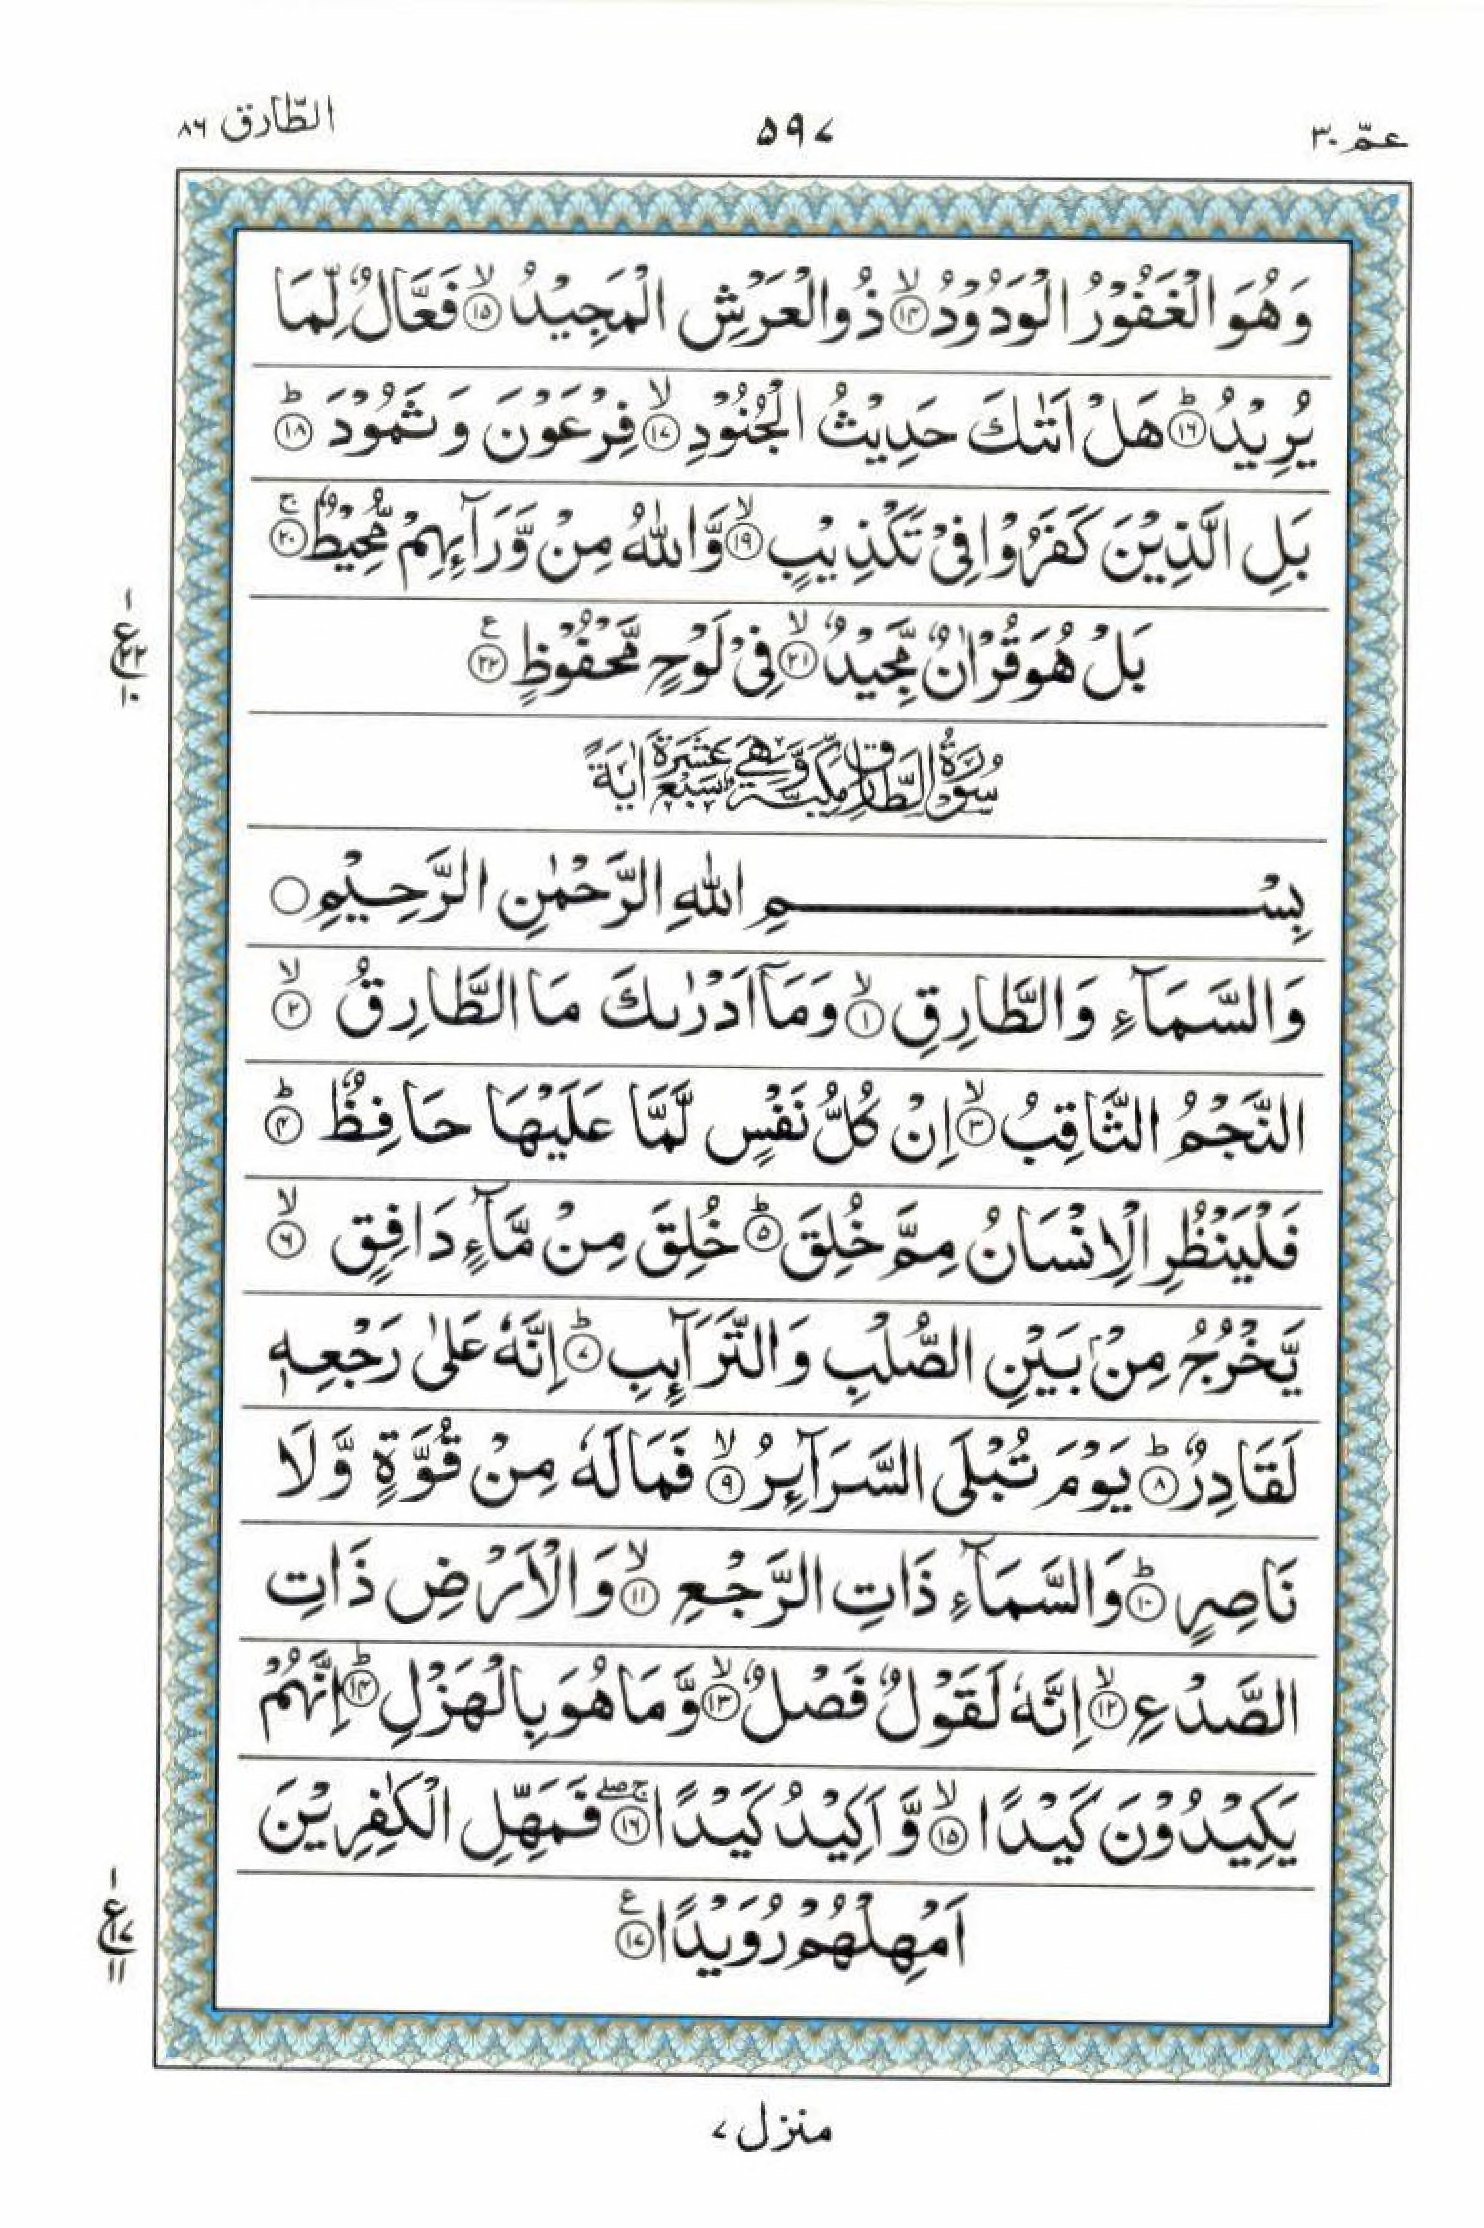 عمّ ٣٠ ٥٩٧ الطّارق ٨٦
وَهُوَ الْغَفُوْرُ الْوَدُوْدُۙ۝١٤ ذُو الْعَرْشِ الْمَجِيْدُۙ۝١٥ فَعَّالٌ لِّمَا
يُرِيْدُؕ۝١٦ هَلْ اَتٰىكَ حَدِيْثُ الْجُنُوْدِۙ۝١٧ فِرْعَوْنَ وَثَمُوْدَؕ۝١٨
بَلِ الَّذِيْنَ كَفَرُوْا فِيْ تَكْذِيْبٍۙ۝١٩ وَّاللّٰهُ مِنْ وَّرَآئِهِمْ مُّحِيْطٌۚ۝٢٠
بَلْ هُوَ قُرْاٰنٌ مَّجِيْدٌۙ۝٢١ فِيْ لَوْحٍ مَّحْفُوْظٍ۝٢٢ ع
ع ١ ٢٢ ١٠
سُوْرَةُ الطَّارِقِ مَكِّيَّةٌ وَّهِيَ سَبْعَ عَشَرَةَ اٰيَةً
بِسْمِ اللّٰهِ الرَّحْمٰنِ الرَّحِيْمِ
وَالسَّمَآءِ وَالطَّارِقِۙ۝١ وَمَآ اَدْرٰىكَ مَا الطَّارِقُۙ۝٢
النَّجْمُ الثَّاقِبُۙ۝٣ اِنْ كُلُّ نَفْسٍ لَّمَّا عَلَيْهَا حَافِظٌؕ۝٤
فَلْيَنْظُرِ الْاِنْسَانُ مِمَّ خُلِقَؕ۝٥ خُلِقَ مِنْ مَّآءٍ دَافِقٍۙ۝٦
يَّخْرُجُ مِنْۢ بَيْنِ الصُّلْبِ وَالتَّرَآئِبِؕ۝٧ اِنَّهٗ عَلٰى رَجْعِهٖ
لَقَادِرٌؕ۝٨ يَوْمَ تُبْلَى السَّرَآئِرُۙ۝٩ فَمَا لَهٗ مِنْ قُوَّةٍ وَّلَا
نَاصِرٍؕ۝١٠ وَالسَّمَآءِ ذَاتِ الرَّجْعِۙ۝١١ وَالْاَرْضِ ذَاتِ
الصَّدْعِۙ۝١٢ اِنَّهٗ لَقَوْلٌ فَصْلٌۙ۝١٣ وَّمَا هُوَ بِالْهَزْلِؕ۝١٤ اِنَّهُمْ
يَكِيْدُوْنَ كَيْدًاۙ۝١٥ وَّاَكِيْدُ كَيْدًاۚۖ۝١٦ فَمَهِّلِ الْكٰفِرِيْنَ
اَمْهِلْهُمْ رُوَيْدًا۝١٧ ع
ع ١ ١٧ ١١
منزل ٧